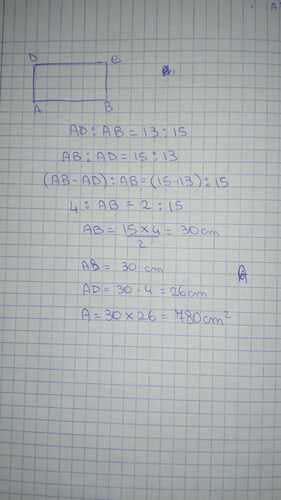 A
D C
A B
AD : AB = 13 : 15
AB : AD = 15 : 13
(AB - AD) : AB = (15 - 13) : 15
4 : AB = 2 : 15
AB = 15 × 4 / 2 = 30 cm
AB = 30 cm
AD = 30 - 4 = 26 cm
A = 30 × 26 = 780 cm²